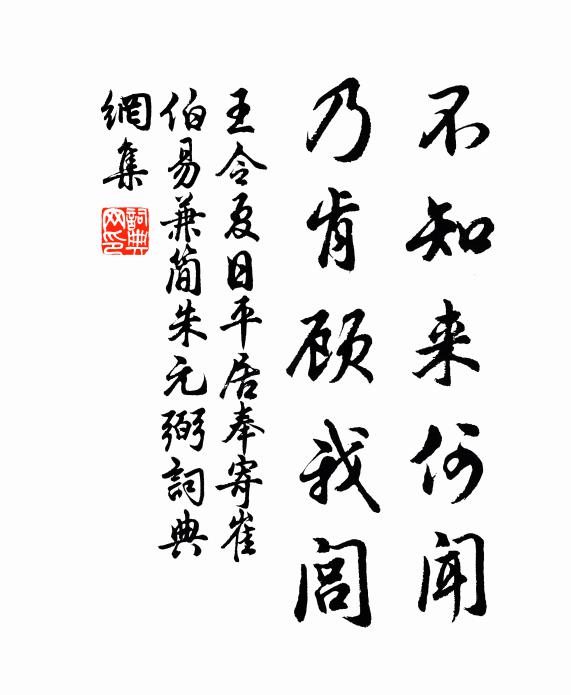 不知来何闻
乃肯顾我闾
王令夏日平居奉寄崔
伯易兼简朱元弼詞典
網集
詞典网印